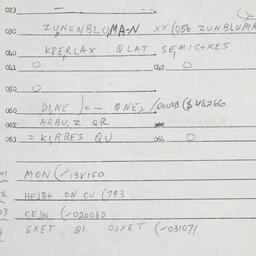 023 —
030 ZUNENBLUMA-N XX (056 ZUNBLUMA
040 KPERLAX QLAT SEMIC+KES
041 O 042 O
050 O
060 DINE )=- QNEX / ($ 48266
061 ARBU,Z QR
063 = KIRBES QU 064 O
01 MON (/138150
2 HEJB+ ON CU (793
03 CESN (-020080
EXET Q1 OJXET (-03107/